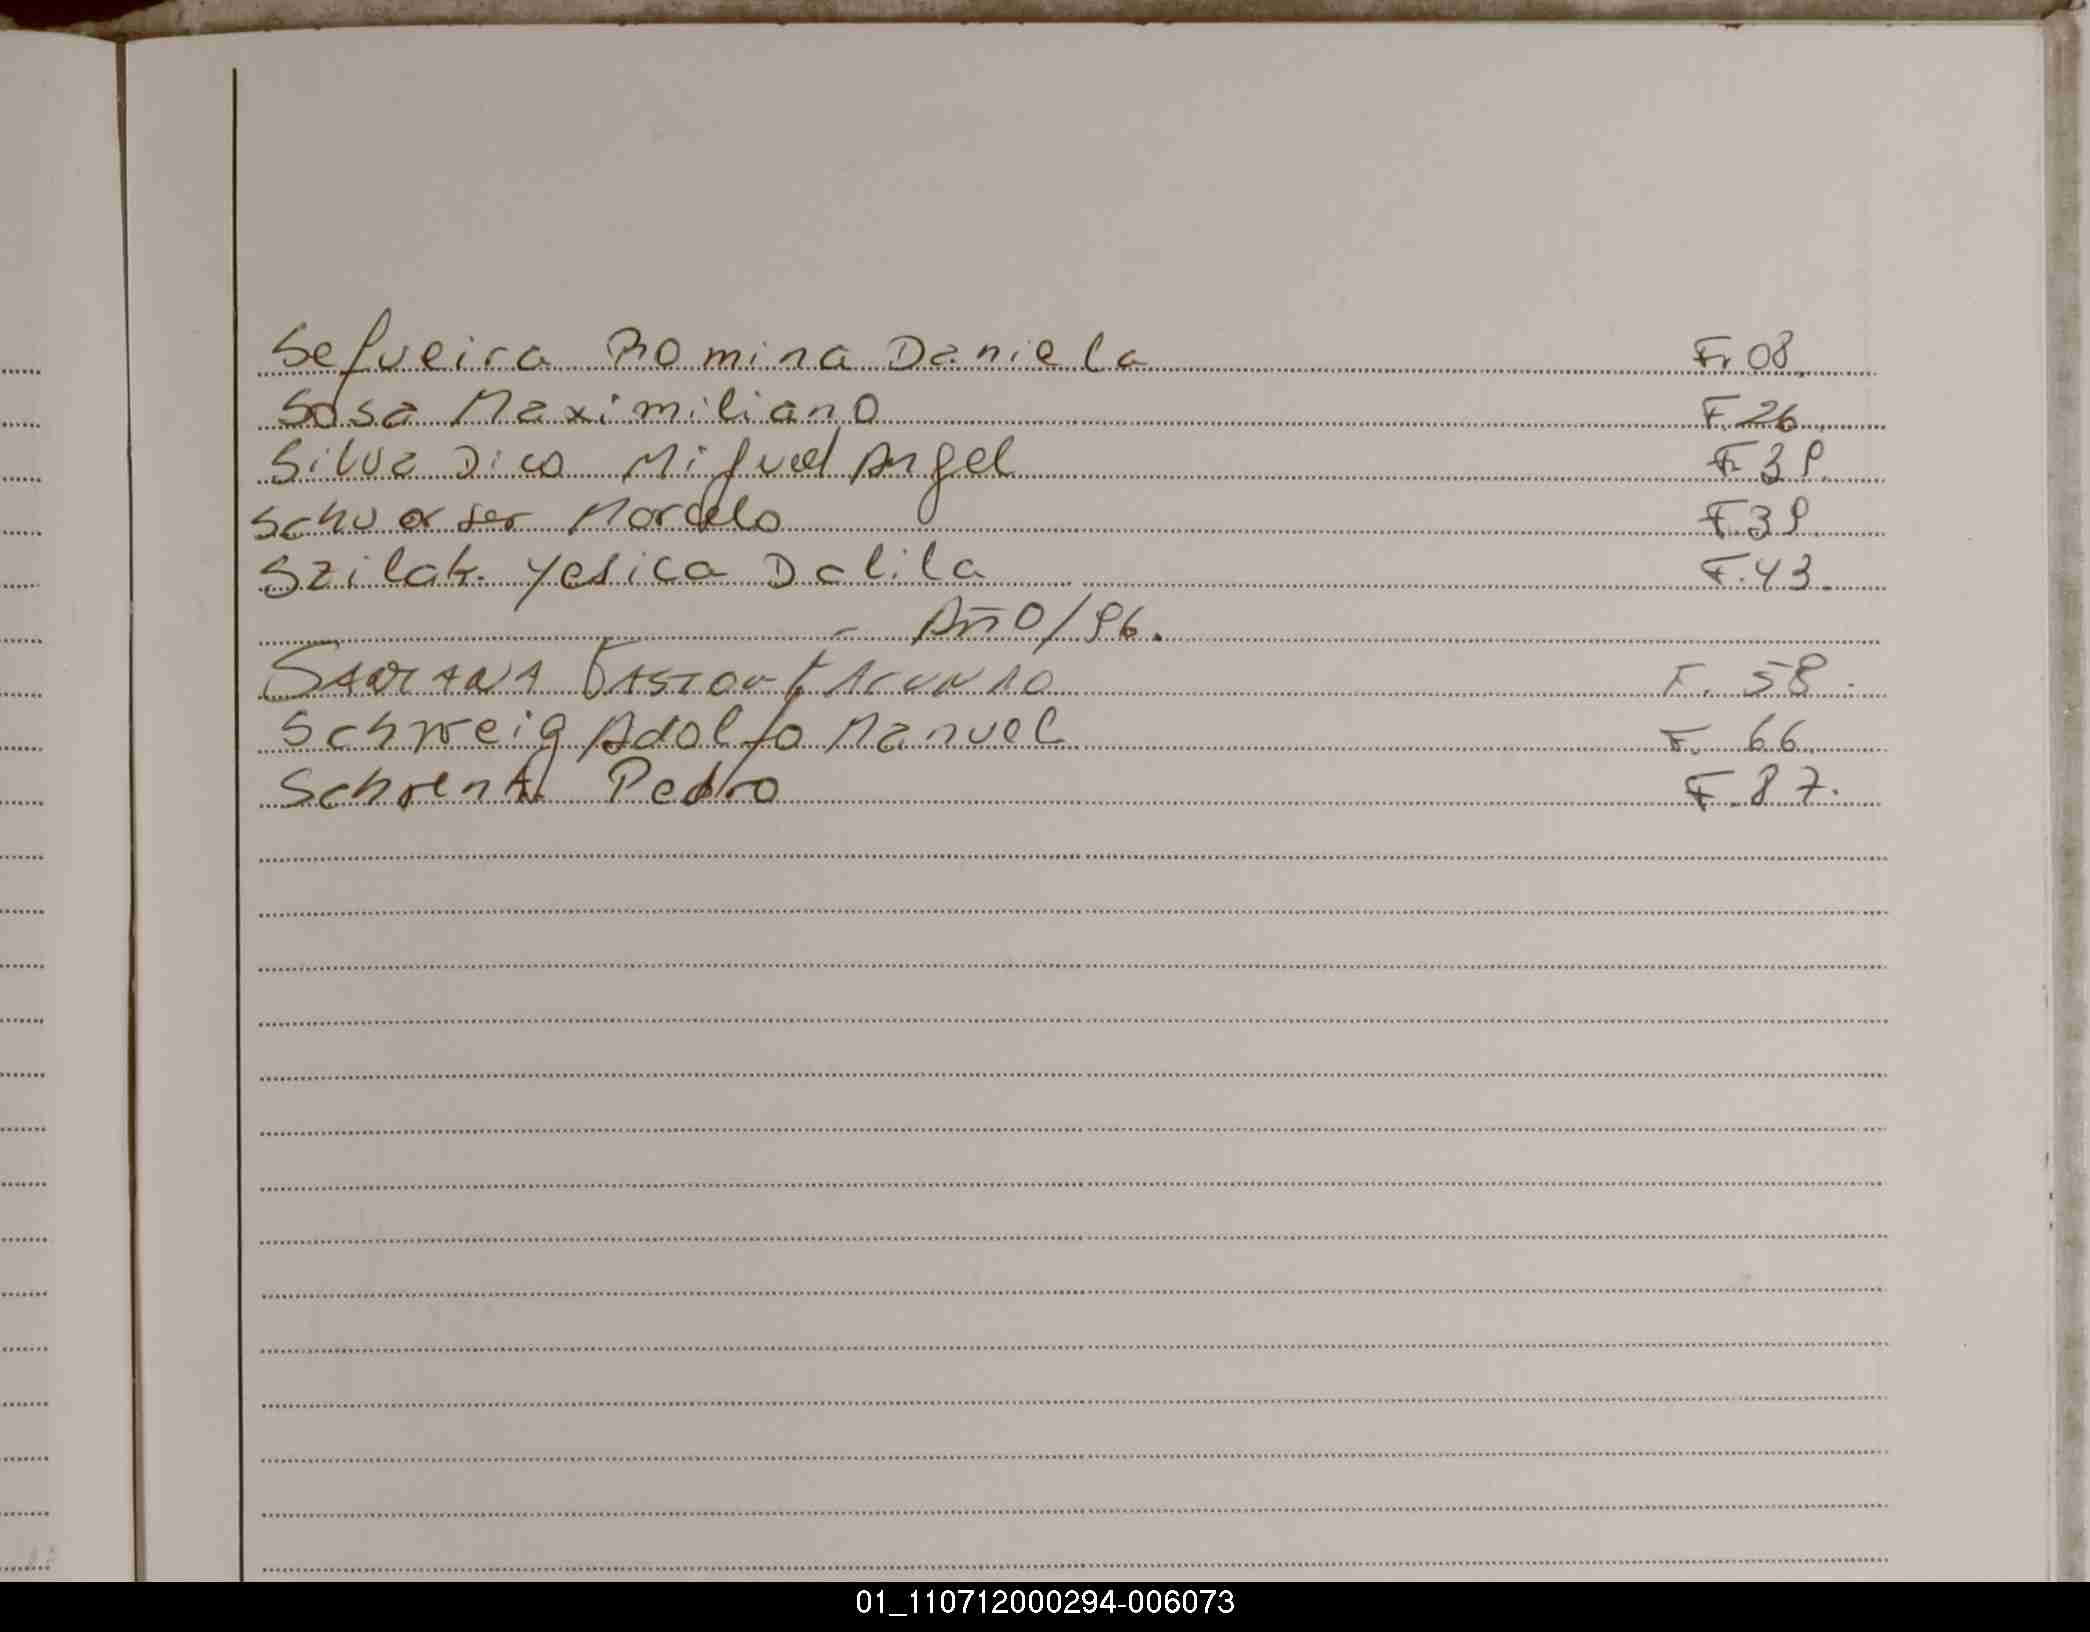 Segueira Romina Daniela F. 08.
Sosa Maximiliano F. 26.
Silva Dico Miguel Angel F. 39.
Schvarser Marcelo F. 39.
Szilak Yesica Dalila F. 43.
- Año/96.
Gaston Facundo F. 58.
Schweig Adolfo Manuel F. 66.
Schrenk Pedro F. 87.
01_110712000294-006073